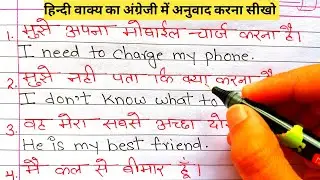 हिन्दी वाक्य का अंग्रेजी में अनुवाद करना सीखो
1. मुझे अपना मोबाईल चार्ज करना है।
I need to charge my phone.
2. मुझे नही पता कि क्या करना है
I don't know what to
3. वह मेरा सबसे अच्छा
He is my best friend.
4. मै कल से बीमार हूँ।